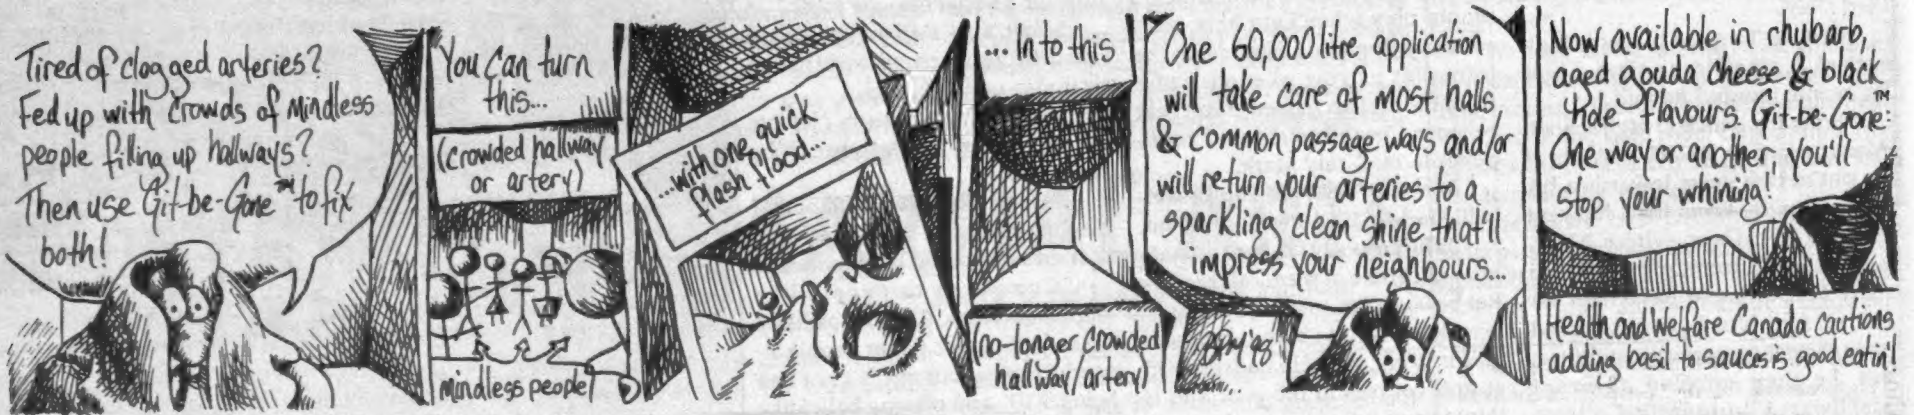 Tired of clogged arteries?
Fed up with crowds of mindless
people filling up hallways?
Then use Git-be-Gone™ to fix
both!
You can turn
this...
(crowded hallway
or artery)
mindless people
...with one quick
flash flood...
... In to this
(no-longer crowded
hallway/artery)
One 60,000 litre application
will take care of most halls
& common passage ways and/or
will return your arteries to a
sparkling clean shine that'll
impress your neighbours...
BPM '98
Now available in rhubarb,
aged gouda cheese & black
hole flavours. Git-be-Gone™:
One way or another, you'll
stop your whining!
Health and Welfare Canada cautions
adding basil to sauces is good eatin'!